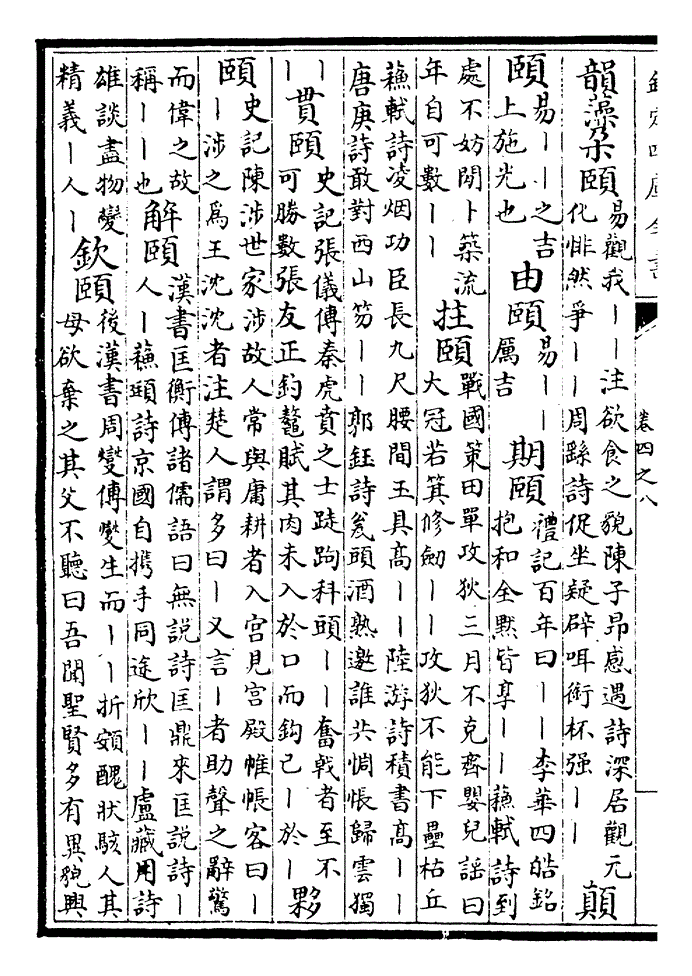 欽定四庫全書
卷四之八
韻藻朶頤
易觀我丨丨注欲食之貌陳子昂感遇詩深居觀元
化悱然爭丨丨周繇詩促坐疑辟咡銜杯强丨丨
顛
頤
易丨丨之吉
上施光也
由頤
易丨丨
厲吉
期頤
禮記百年曰丨丨李華四皓銘
抱和全黙皆享丨丨蘇軾詩到
處不妨閒卜築流
年自可數丨丨
拄頤
戰國策田單攻狄三月不克齊嬰兒謡曰
大冠若箕修劍丨丨攻狄不能下壘枯丘
蘇軾詩凌烟功臣長九尺腰間玉具高丨丨陸游詩積書高丨丨
唐庚詩敢對西山笏丨丨郭鈺詩瓮頭酒熟邀誰共惆悵歸雲獨
丨
丨
貫頤
史記張儀傳秦虎賁之士跿跔科頭丨丨奮戟者至不
可勝數張友正釣鼇賦其肉未入於口而鈎已丨於丨
夥
頤
史記陳涉世家涉故人常與庸耕者入宫見宫殿帷帳客曰丨
丨涉之爲王沈沈者注楚人謂多曰丨又言丨者助聲之辭驚
而偉之故
稱丨丨也
解頤
漢書匡衡傳諸儒語曰無説詩匡鼎來匡説詩丨
人丨蘇頲詩京國自攜手同途欣丨丨盧藏用詩
雄談盡物變
精義丨人丨
欽頤
後漢書周燮傳燮生而丨丨折頞醜狀駭人其
母欲棄之其父不聽曰吾聞聖賢多有異貌興